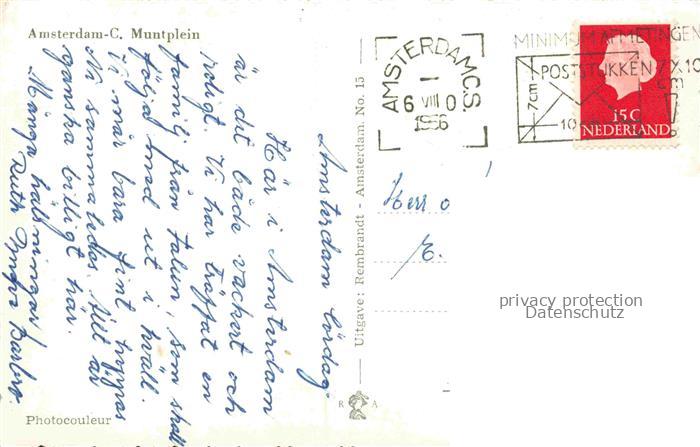 Amsterdam-C. Muntplein
Amsterdam lördag
Här i Amsterdam
är det både vackert och
roligt. Vi har träffat en
familj från Falun, som skall
följa med ut i kväll.
Vi mår bara fint hoppas
Ni sammaledes. Allt är
ganska billigt här.
Många hälsningar
Ruth Barbro
Photocouleur
Uitgave: Rembrandt - Amsterdam. No. 15
R A
AMSTERDAM C.S.
6 VIII 0
1956
MINIMUM AFMETINGEN
POSTSTUKKEN 7 X 10
cm
7cm
10
15C
NEDERLAND
Herr o
E.
privacy protection
Datenschutz